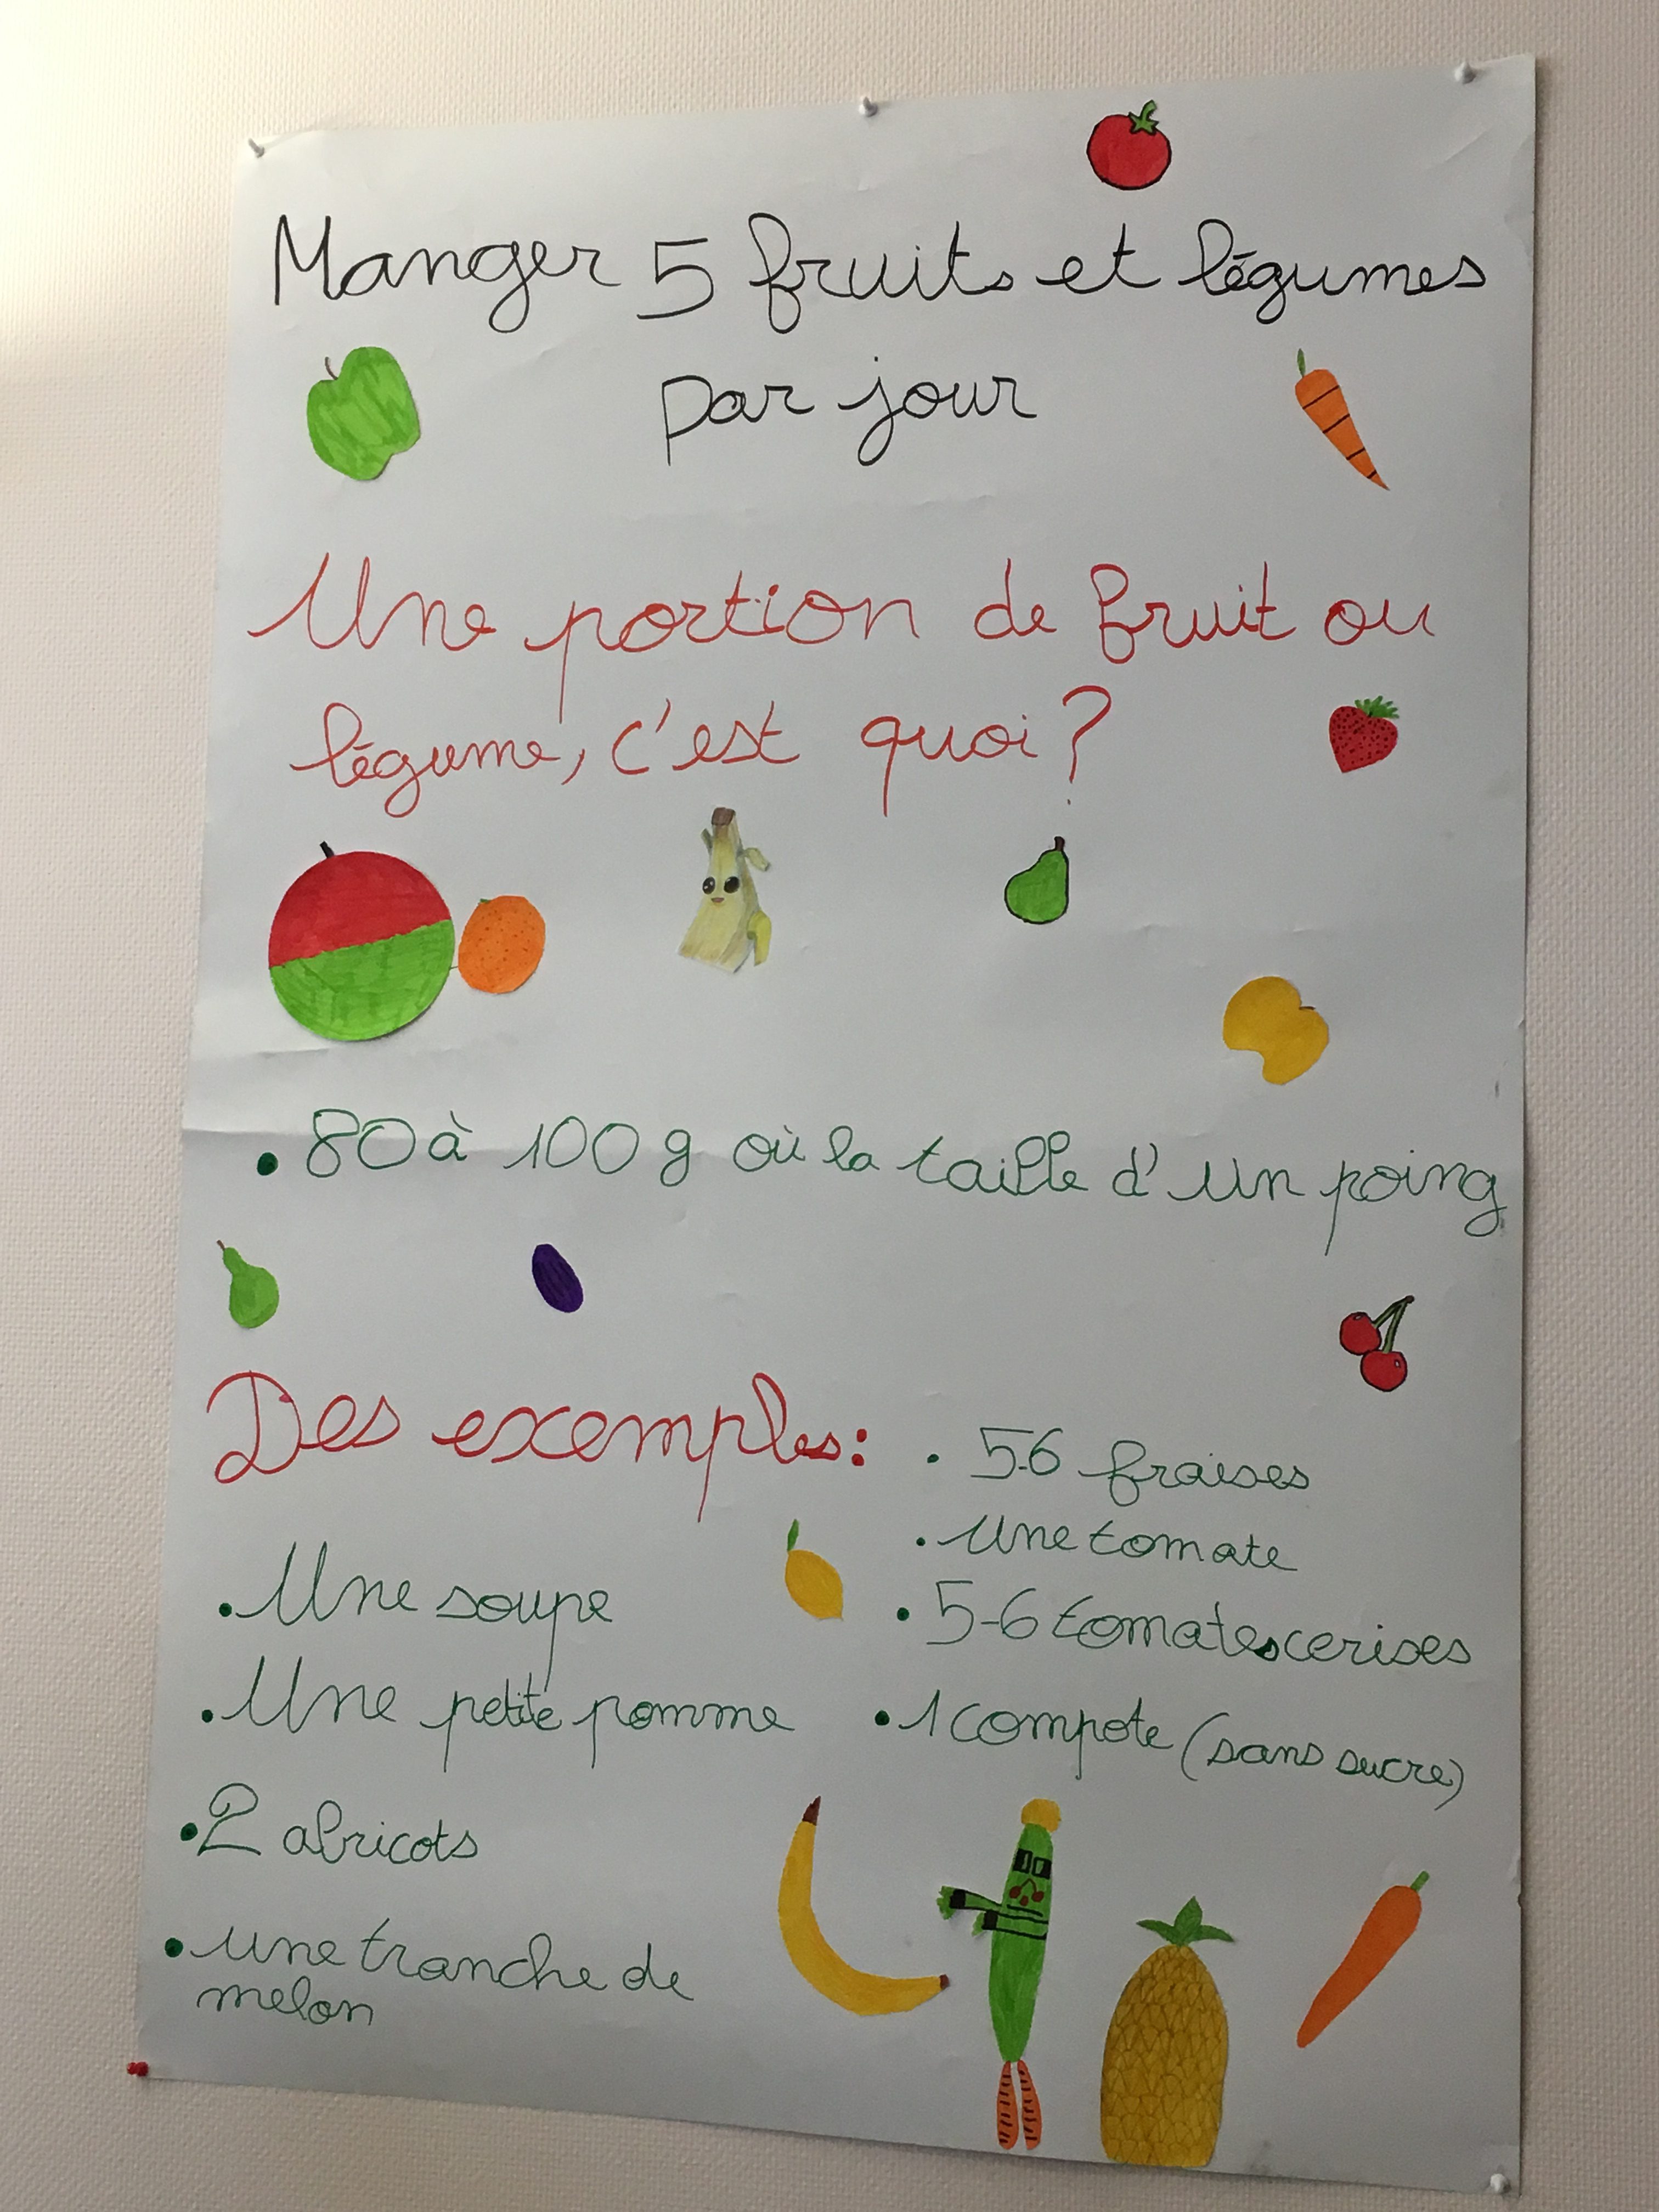 Manger 5 fruits et légumes
par jour
Une portion de fruit ou
légume, c'est quoi ?
• 80 à 100 g où la taille d'un poing
Des exemples :
• Une soupe
• Une petite pomme
• 2 abricots
• une tranche de
melon
• 5-6 fraises
• une tomate
• 5-6 tomates cerises
• 1 compote (sans sucre)